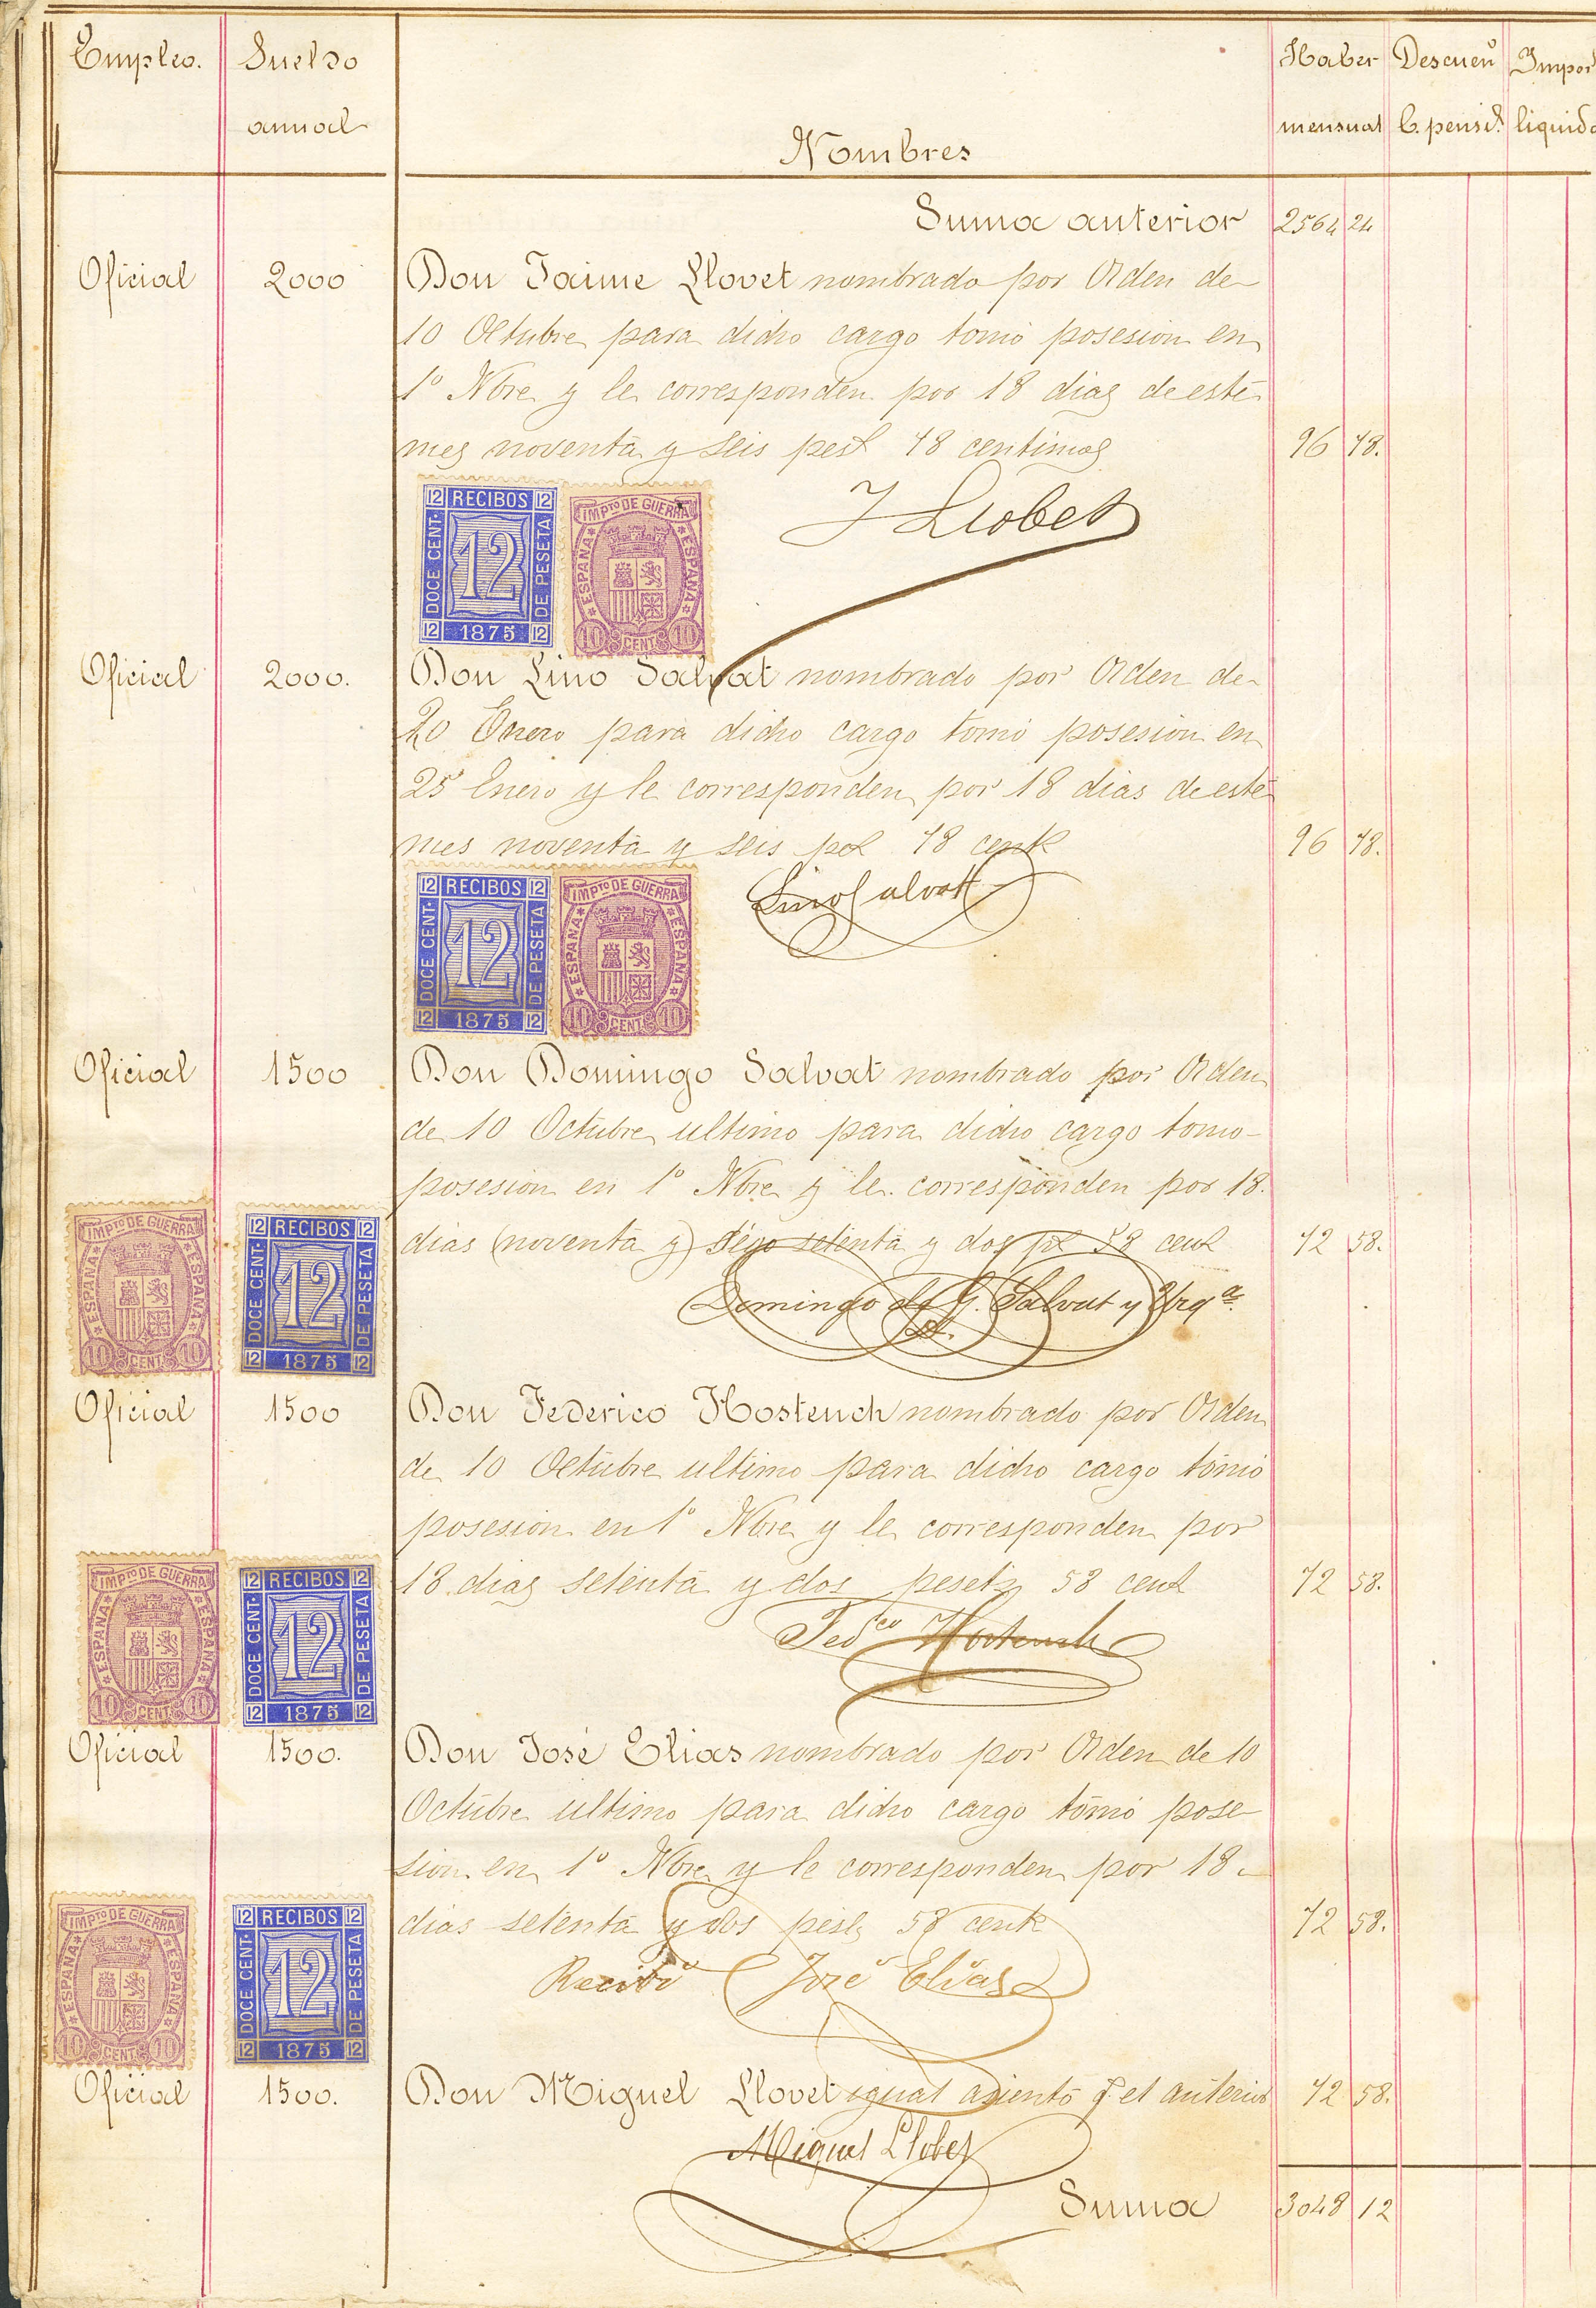 Empleo. Sueldo anual Nombres Haber mensual Descuen.º C. pens.s Impor liquido
Suma anterior 2564 24
Oficial 2000 Don Jaime Llovet nombrado por Orden de
10 Octubre para dicho cargo tomó posesion en
1º Nbre y le corresponden por 18 dias de este
mes noventa y seis pest 78 centimos 96 78.
12 RECIBOS 12
DOCE CENT.
12
DE PESETA
12 1875 12
IMPTO DE GUERRA
ESPAÑA
ESPAÑA
10 CENTS 10
J Llobet
Oficial 2000. Don Lino Salvat nombrado por Orden de
20 Enero para dicho cargo tomó posesion en
25 Enero y le corresponden por 18 dias de este
mes noventa y seis pst 78 cents 96 78.
12 RECIBOS 12
DOCE CENT.
12
DE PESETA
12 1875 12
IMPTO DE GUERRA
ESPAÑA
ESPAÑA
10 CENTS 10
Lino Salvat
Oficial 1500 Don Domingo Salvat nombrado por Orden
de 10 Octubre ultimo para dicho cargo tomo
posesion en 1º Nbre y le corresponden por 18.
dias (noventa y) digo setenta y dos pt 58 cent 72 58.
IMPTO DE GUERRA
ESPAÑA
ESPAÑA
10 CENTS 10
12 RECIBOS 12
DOCE CENT.
12
DE PESETA
12 1875 12
Domingo de G. Salvat y
Oficial 1500 Don Federico Hostench nombrado por Orden
de 10 Octubre ultimo para dicho cargo tomó
posesion en 1º Nbre y le corresponden por
18 dias setenta y dos pesets 58 cent 72 58.
IMPTO DE GUERRA
ESPAÑA
ESPAÑA
10 CENTS 10
12 RECIBOS 12
DOCE CENT.
12
DE PESETA
12 1875 12
Fedco Hostench
Oficial 1500. Don José Elias nombrado por Orden de 10
Octubre ultimo para dicho cargo tomó pose
sion en 1º Nbre y le corresponden por 18
dias setenta y dos pests 58 cents 72 58.
IMPTO DE GUERRA
ESPAÑA
ESPAÑA
10 CENTS 10
12 RECIBOS 12
DOCE CENT.
12
DE PESETA
12 1875 12
Recibí José Elías
Oficial 1500. Don Miguel Llovet igual asiento q. el anterior 72 58.
Miguel Llobet
Suma 3048 12